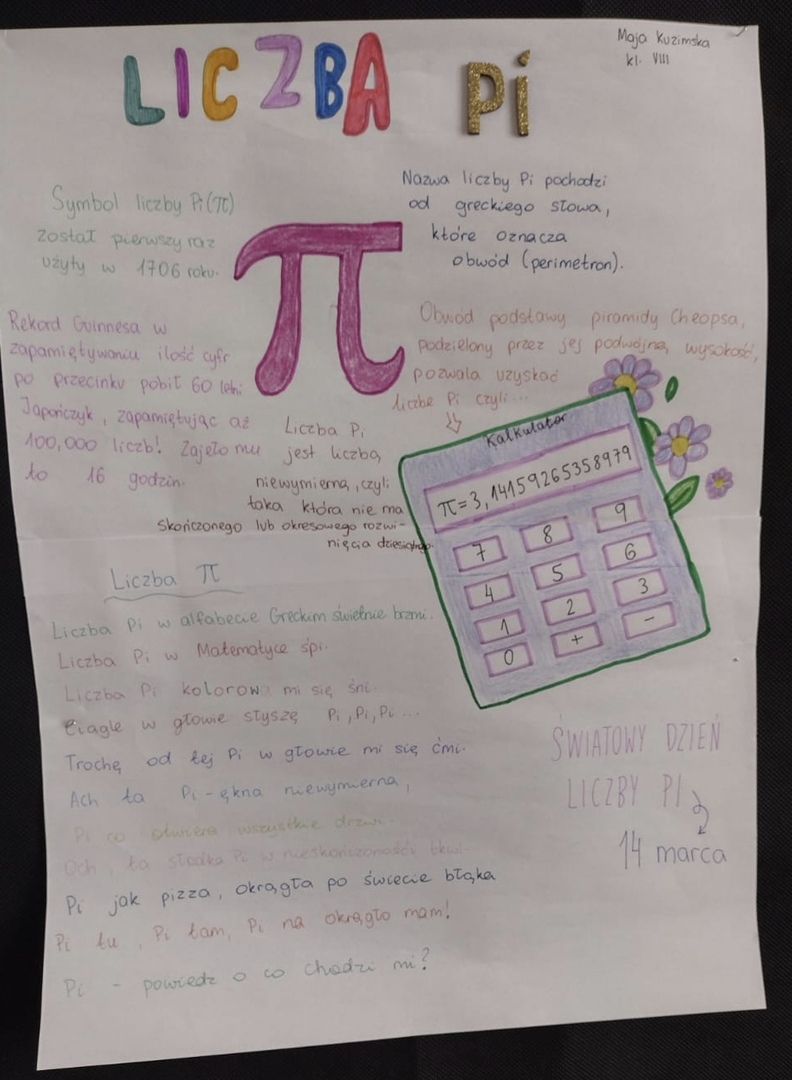 Maja Kuzimska
kl. VIII
LICZBA Pi
Symbol liczby Pi (π)
został pierwszy raz
użyty w 1706 roku.
Nazwa liczby Pi pochodzi
od greckiego słowa,
które oznacza
obwód (perimetron).
π
Rekord Guinnesa w
zapamiętywaniu ilość cyfr
po przecinku pobił 60 letni
Japończyk, zapamiętując aż
100,000 liczb! Zajęło mu
to 16 godzin.
Obwód podstawy piramidy Cheopsa,
podzielony przez jej podwójną wysokość,
pozwala uzyskać
liczbę Pi czyli...
Liczba Pi
jest liczbą
niewymierną, czyli
taka która nie ma
skończonego lub okresowego rozwi-
nięcia dziesiętnego.
Kalkulator
π=3,14159265358979
7 8 9
4 5 6
1 2 3
0 + -
Liczba π
Liczba Pi w alfabecie Greckim świetnie brzmi.
Liczba Pi w Matematyce śpi.
Liczba Pi kolorowa mi się śni.
Ciągle w głowie słyszę Pi, Pi, Pi...
Trochę od tej Pi w głowie mi się ćmi.
Ach ta Pi-ękna niewymierna,
Pi co otwiera wszystkie drzwi.
Och, ta słodka Pi w nieskończoności tkwi.
Pi jak pizza, okrągła po świecie błąka
Pi tu, Pi tam, Pi na okrągło mam!
Pi - powiedz o co chodzi mi?
ŚWIATOWY DZIEŃ
LICZBY PI
14 marca